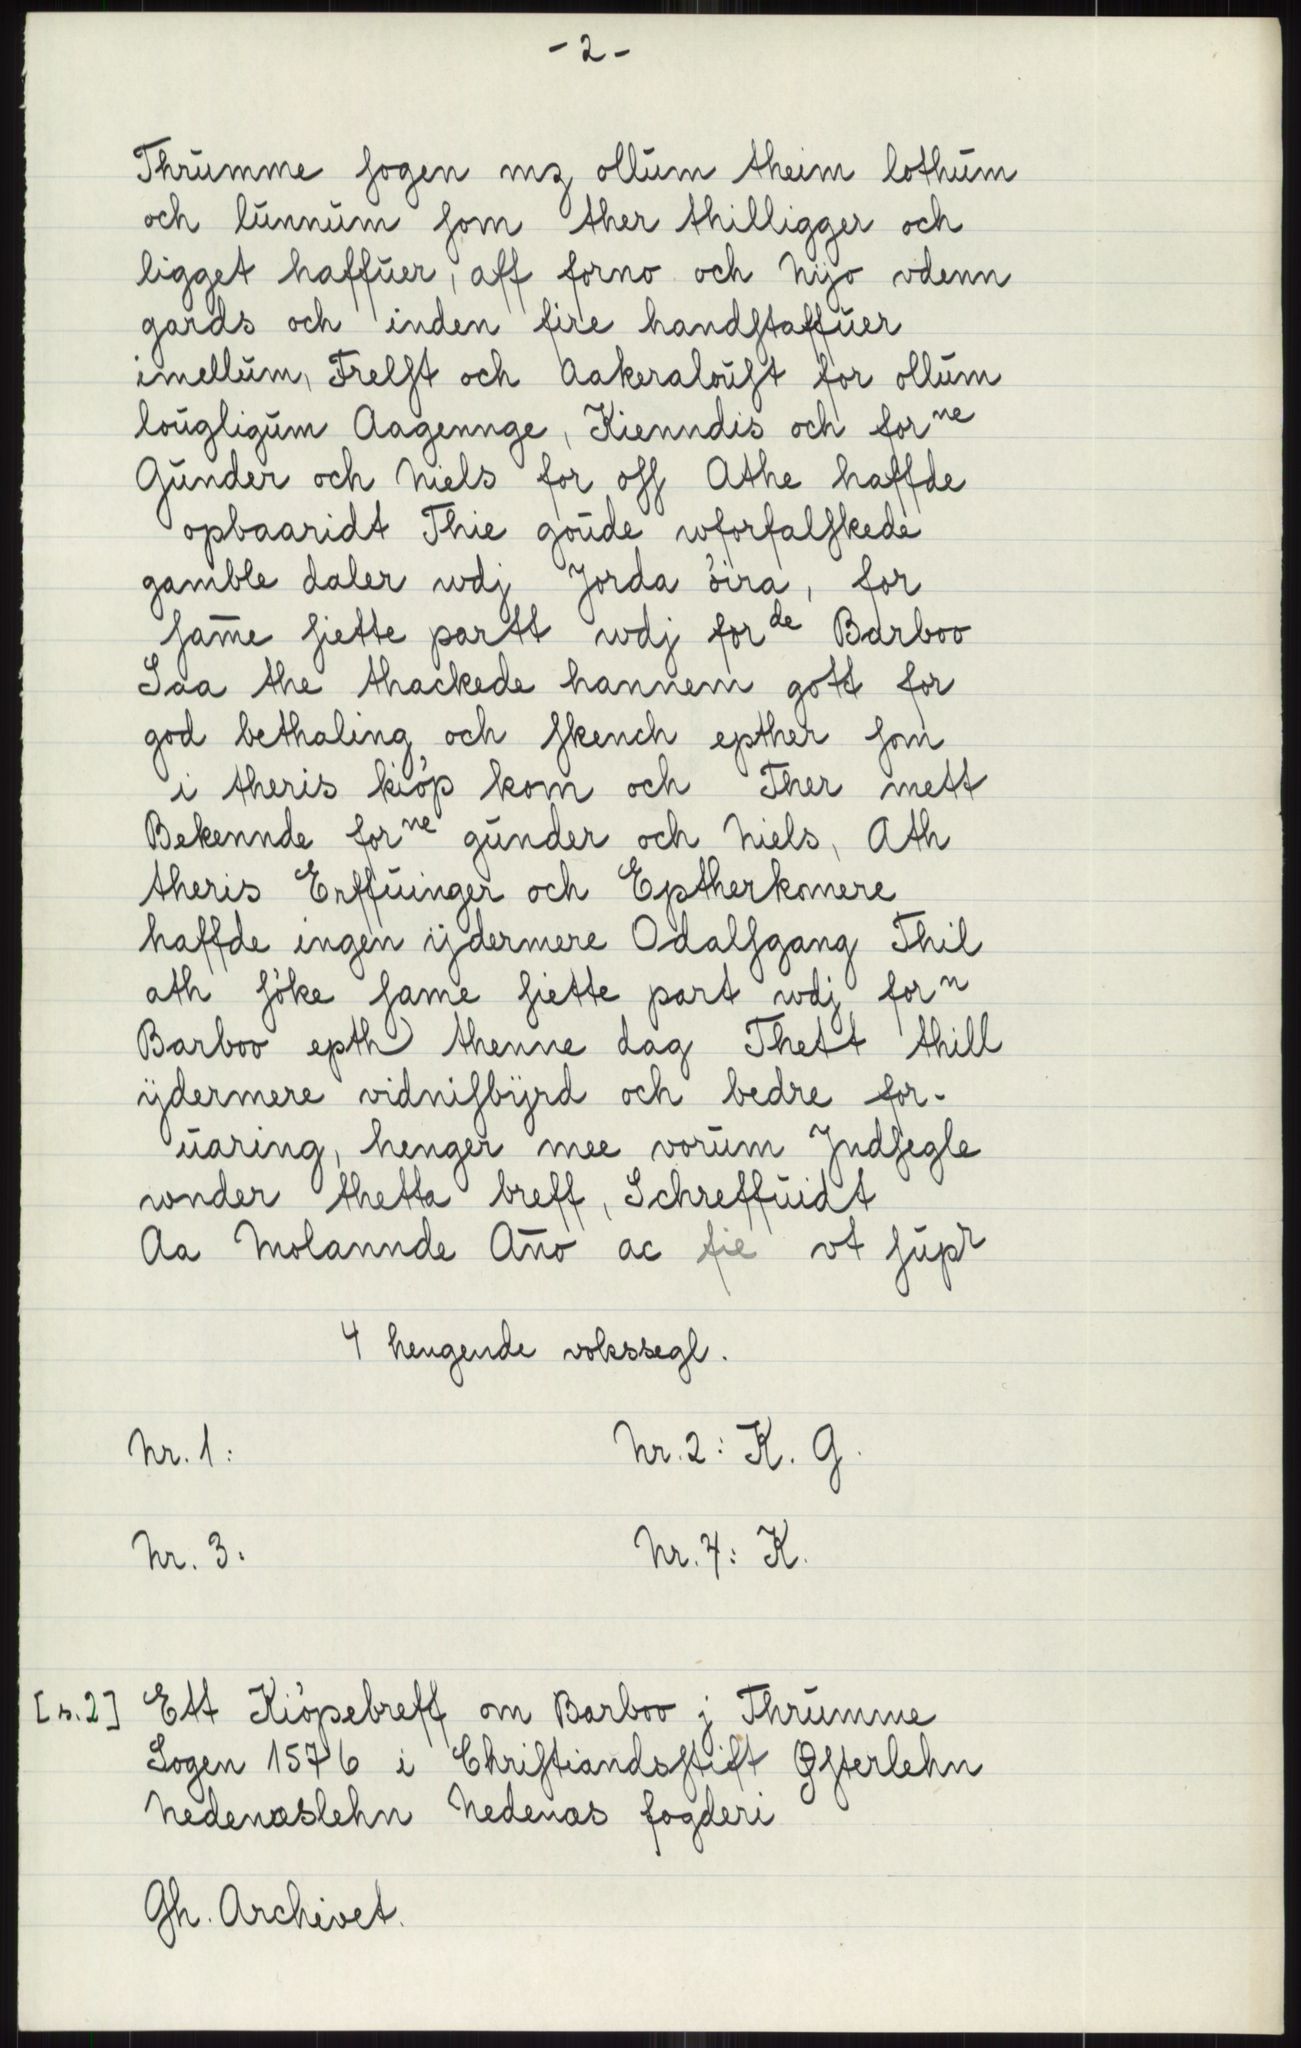 - 2 -
Thrŭmme ſogen mʒ ollŭm theim lothŭm
och lŭnnŭm ſom ther thilligger och
ligget haffŭer, aff forno och Nÿo vdenn
gards och inden fire handſtaffŭer
imellŭm, Frelſt och Aakeraloŭſt for ollŭm
loŭgligŭm Aagennge, Kienndis och forⁿᵉ
Gŭnder och Niels for oſſ Athe haffde
opbaaridt Thie goŭde wforfalſkede
gamble daler wdj Jorda öira, for
ſam̄e ſiette partt wdj forᵈᵉ Barboo
Saa the thackede hannem gott for
god bethaling och ſkench epther ſom
i theris kiöp kom och Ther mett
Bekennde forⁿᵉ gŭnder och Niels, Ath
theris Erffŭinger och Eptherkomere
haffde ingen ijdermere Odalſgang Thil
ath ſöke ſame ſiette part wdj forⁿ
Barboo epth thenne dag Thett thill
ijdermere vidniſbÿrd och bedre for-
ŭaring, henger mee vorŭm Jndſegle
wnder thetta breff, Schreffŭidt
Aa Molannde An̄o ac ſie vt ſŭpʳ
4 hengende vokssegl.
Nr. 1:
Nr. 2: K. G.
Nr. 3:
Nr. 4: K.
[s. 2] Ett Kiöpebreff om Barboo j Thrŭmme
Sogen 1576 i Chriſtiandsſtift Øſterlehn
Nedenæslehn Nedenæs fogderi
Gh. Archivet.